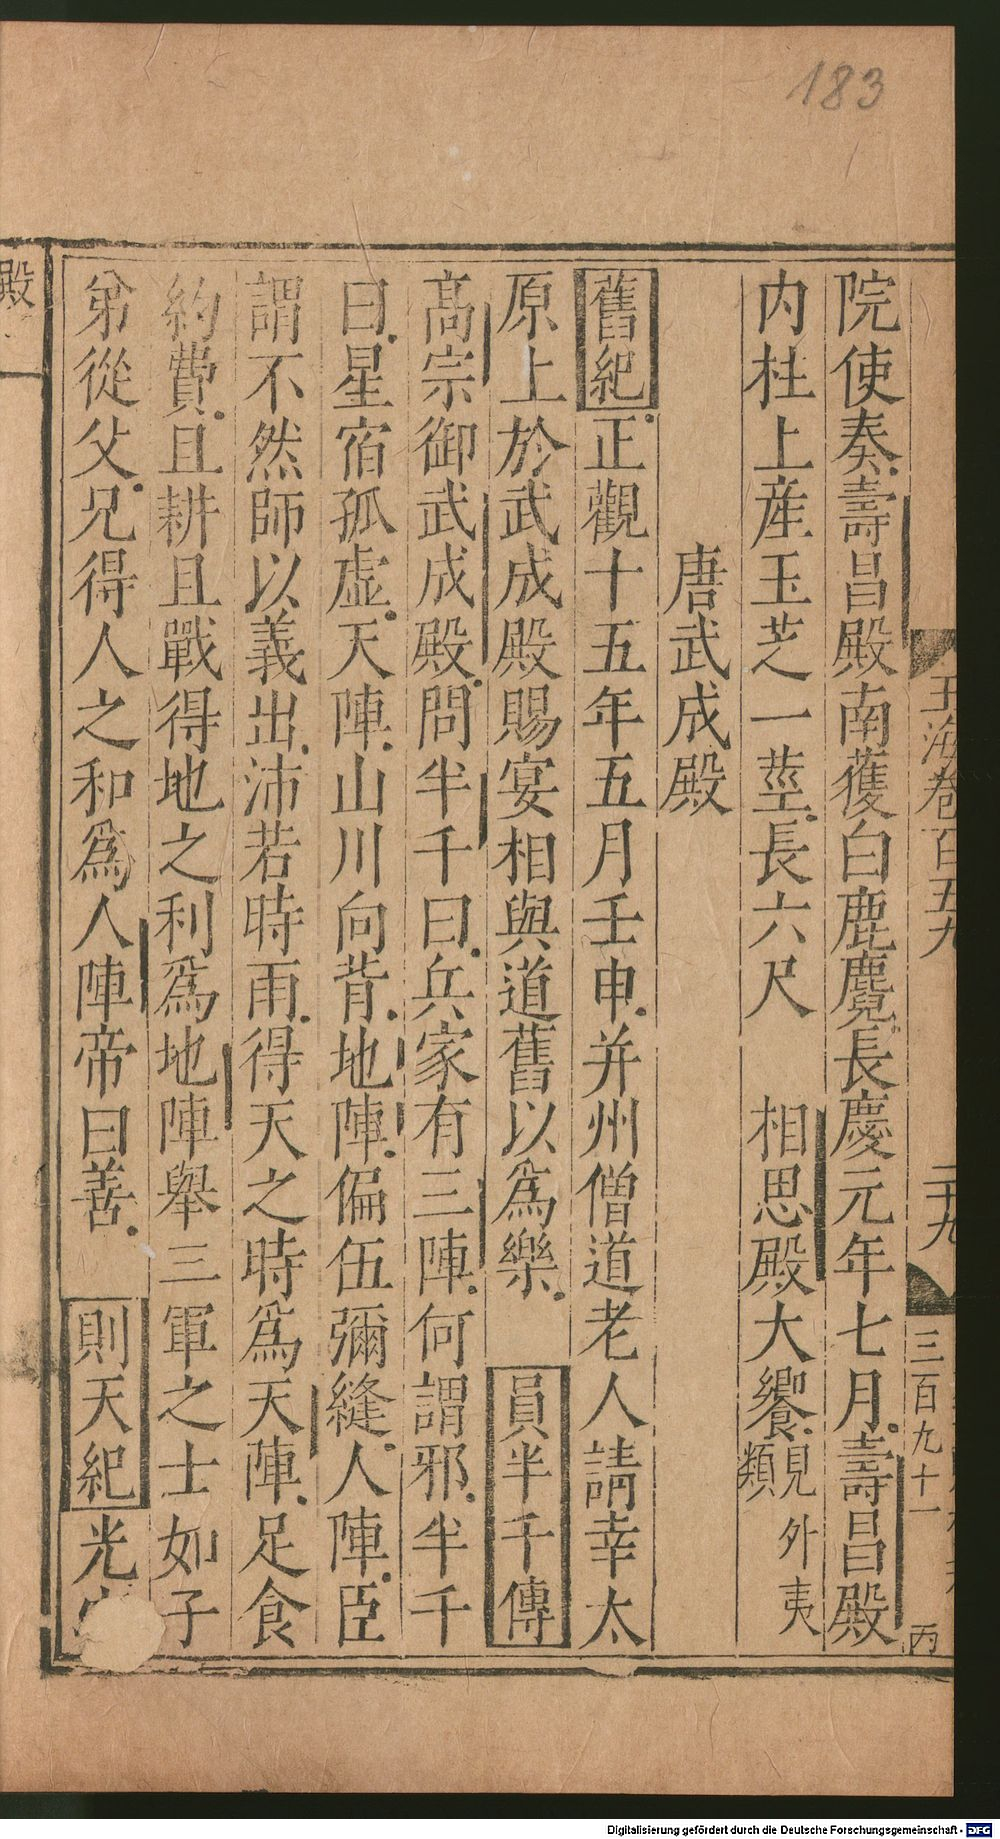 183
玉海卷百五九
二十九
三百九十一
丙
院使奏壽昌殿南獲白鹿麑長慶元年七月壽昌殿
内柱上産玉芝一莖長六尺　相思殿大饗見外夷類
唐武成殿
舊紀正觀十五年五月壬申并州僧道老人請幸太
原上於武成殿賜宴相與道舊以爲樂　員半千傳
髙宗御武成殿問半千曰兵家有三陣何謂邪半千
曰星宿孤虛天陣山川向背地陣偏伍彌縫人陣臣
謂不然師以義出沛若時雨得天之時爲天陣足食
約費且耕且戰得地之利爲地陣舉三軍之士如子
弟從父兄得人之和爲人陣帝曰善　則天紀光
殿
Digitalisierung gefördert durch die Deutsche Forschungsgemeinschaft - DFG